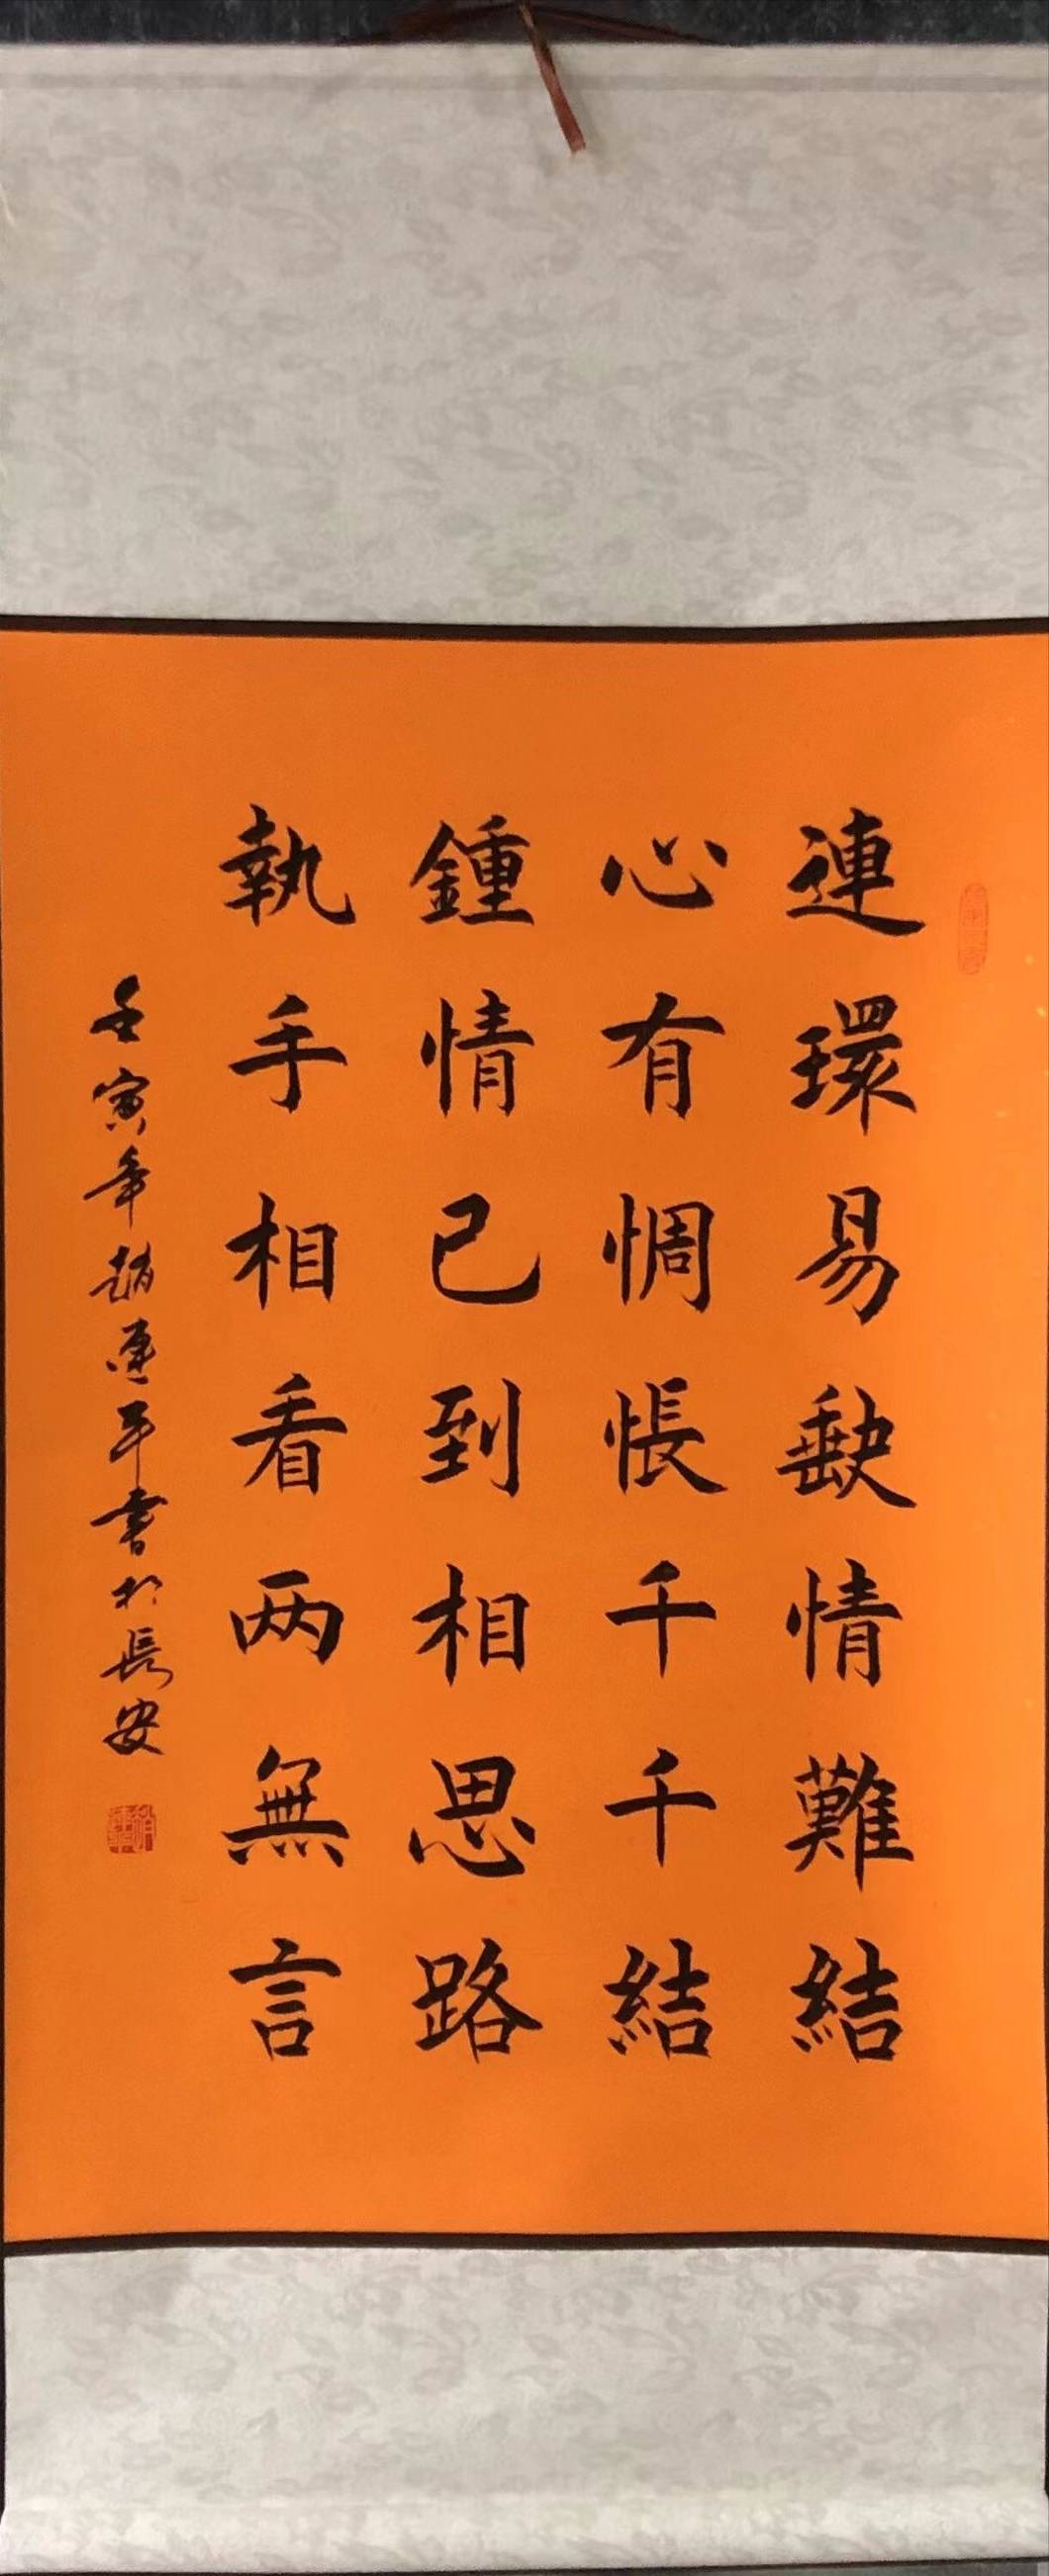 連環易缺情難結
心有惆悵千千結
鍾情已到相思路
執手相看两無言
壬寅年趙運平書於長安